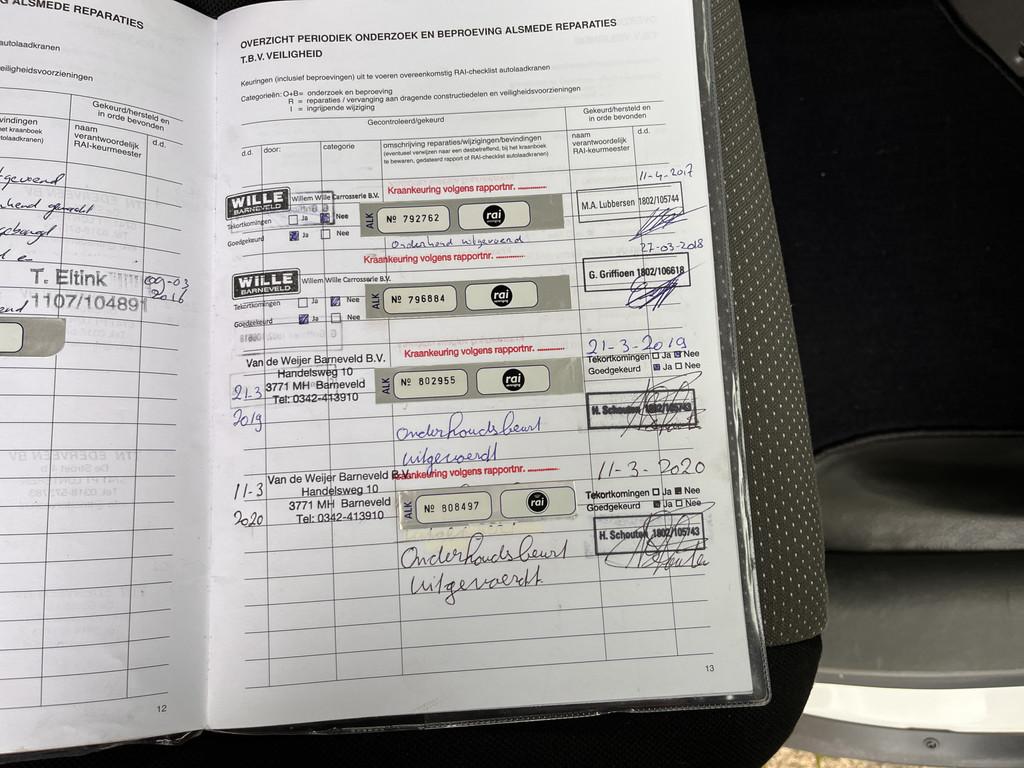 G ALSMEDE REPARATIES
autolaadkranen
veiligheidsvoorzieningen
Gekeurd/hersteld en
in orde bevonden
vindingen
het kraanboek
tolaadkranen)
naam
verantwoordelijk
RAI-keurmeester
d.d.
T. Eltink
1107/104891
09-03
2016
12
OVERZICHT PERIODIEK ONDERZOEK EN BEPROEVING ALSMEDE REPARATIES
T.B.V. VEILIGHEID
Keuringen (inclusief beproevingen) uit te voeren overeenkomstig RAI-checklist autolaadkranen
Categorieën: O+B= onderzoek en beproeving
R = reparaties / vervanging aan dragende constructiedelen en veiligheidsvoorzieningen
I = ingrijpende wijziging
Gecontroleerd/gekeurd
Gekeurd/hersteld en
in orde bevonden
d.d.
door:
categorie
omschrijving reparaties/wijzigingen/bevindingen
(eventueel verwijzen naar een desbetreffend, bij het kraanboek
te bewaren, gedateerd rapport of RAI-checklist autolaadkranen)
naam
verantwoordelijk
RAI-keurmeester
d.d.
11-4-2017
WILLE
BARNEVELD
Willem Wille Carrosserie B.V.
Tekortkomingen Ja Nee
Goedgekeurd Ja Nee
Kraankeuring volgens rapportnr.
ALK
Nº 792762
rai
M.A. Lubbersen 1802/105744
Onderhoud uitgevoerd
27-03-2018
WILLE
BARNEVELD
Willem Wille Carrosserie B.V.
Tekortkomingen Ja Nee
Goedgekeurd Ja Nee
Kraankeuring volgens rapportnr.
ALK
Nº 796884
rai
G. Griffioen 1802/106618
21-3
2019
Van de Weijer Barneveld B.V.
Handelsweg 10
3771 MH Barneveld
Tel: 0342-413910
Kraankeuring volgens rapportnr.
ALK
Nº 802955
rai
21-3-2019
Tekortkomingen Ja Nee
Goedgekeurd Ja Nee
H. Schouten 1802/105743
Onderhoudsbeurt
uitgevoerdt
11-3
2020
Van de Weijer Barneveld B.V.
Handelsweg 10
3771 MH Barneveld
Tel: 0342-413910
Kraankeuring volgens rapportnr.
ALK
Nº 808497
rai
11-3-2020
Tekortkomingen Ja Nee
Goedgekeurd Ja Nee
H. Schouten 1802/105743
Onderhoudsbeurt
uitgevoerdt
13